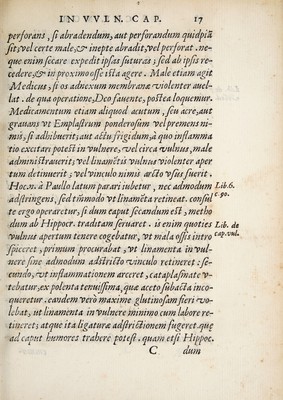 IN VVLN. CAP. 17
perforans, si abradendum, aut perforandum quidpiā
sit, vel certe male, & inepte abradit, vel perforat. ne-
que enim secare expedit ipsas suturas; sed ab ipsis re-
cedere, & in proximo osse ista agere. Male etiam agit
Medicus, si os adnexum membranæ violenter auel-
lat. de qua operatione, Deo fauente, postea loquemur.
Medicamentum etiam aliquod acutum, seu acre, aut
grauans vt Emplastrum ponderosum vel premens ni-
mis, si adhibuerit; aut actu frigidum, à quo inflamma
tio excitari potest in vulnere, vel circa vulnus, male
administrauerit; vel linamētis vulnus violenter aper
tum detinuerit; vel vinculo nimis arcto vsus fuerit.
Hoc n. à Paullo latum parari iubetur, nec admodum
adstringens, sed tm̄modo vt linamēta retineat. consul
te ergo operaretur, si dum caput secandum est, metho
dum ab Hippocr. traditam seruaret. is enim quoties
vulnus apertum tenere cogebatur, vt mala ossis intro
spiceret, primum procurabat, vt linamenta in vul-
nere sine admodum adstricto vinculo retineret: se-
cundo, vt inflammationem arceret, cataplasmate v-
tebatur, ex polenta tenuissima, quæ aceto subacta inco-
queretur. eandem verò maxime glutinosam fieri vo-
lebat, ut linamenta in vulnere minimo cum labore re-
tineret; atque ita ligaturæ adstrictionem fugeret, quæ
ad caput humores trahere potest. quam etsi Hippoc.
C dum
Lib. 6.
c. 90.
Lib. de
cap. vul.